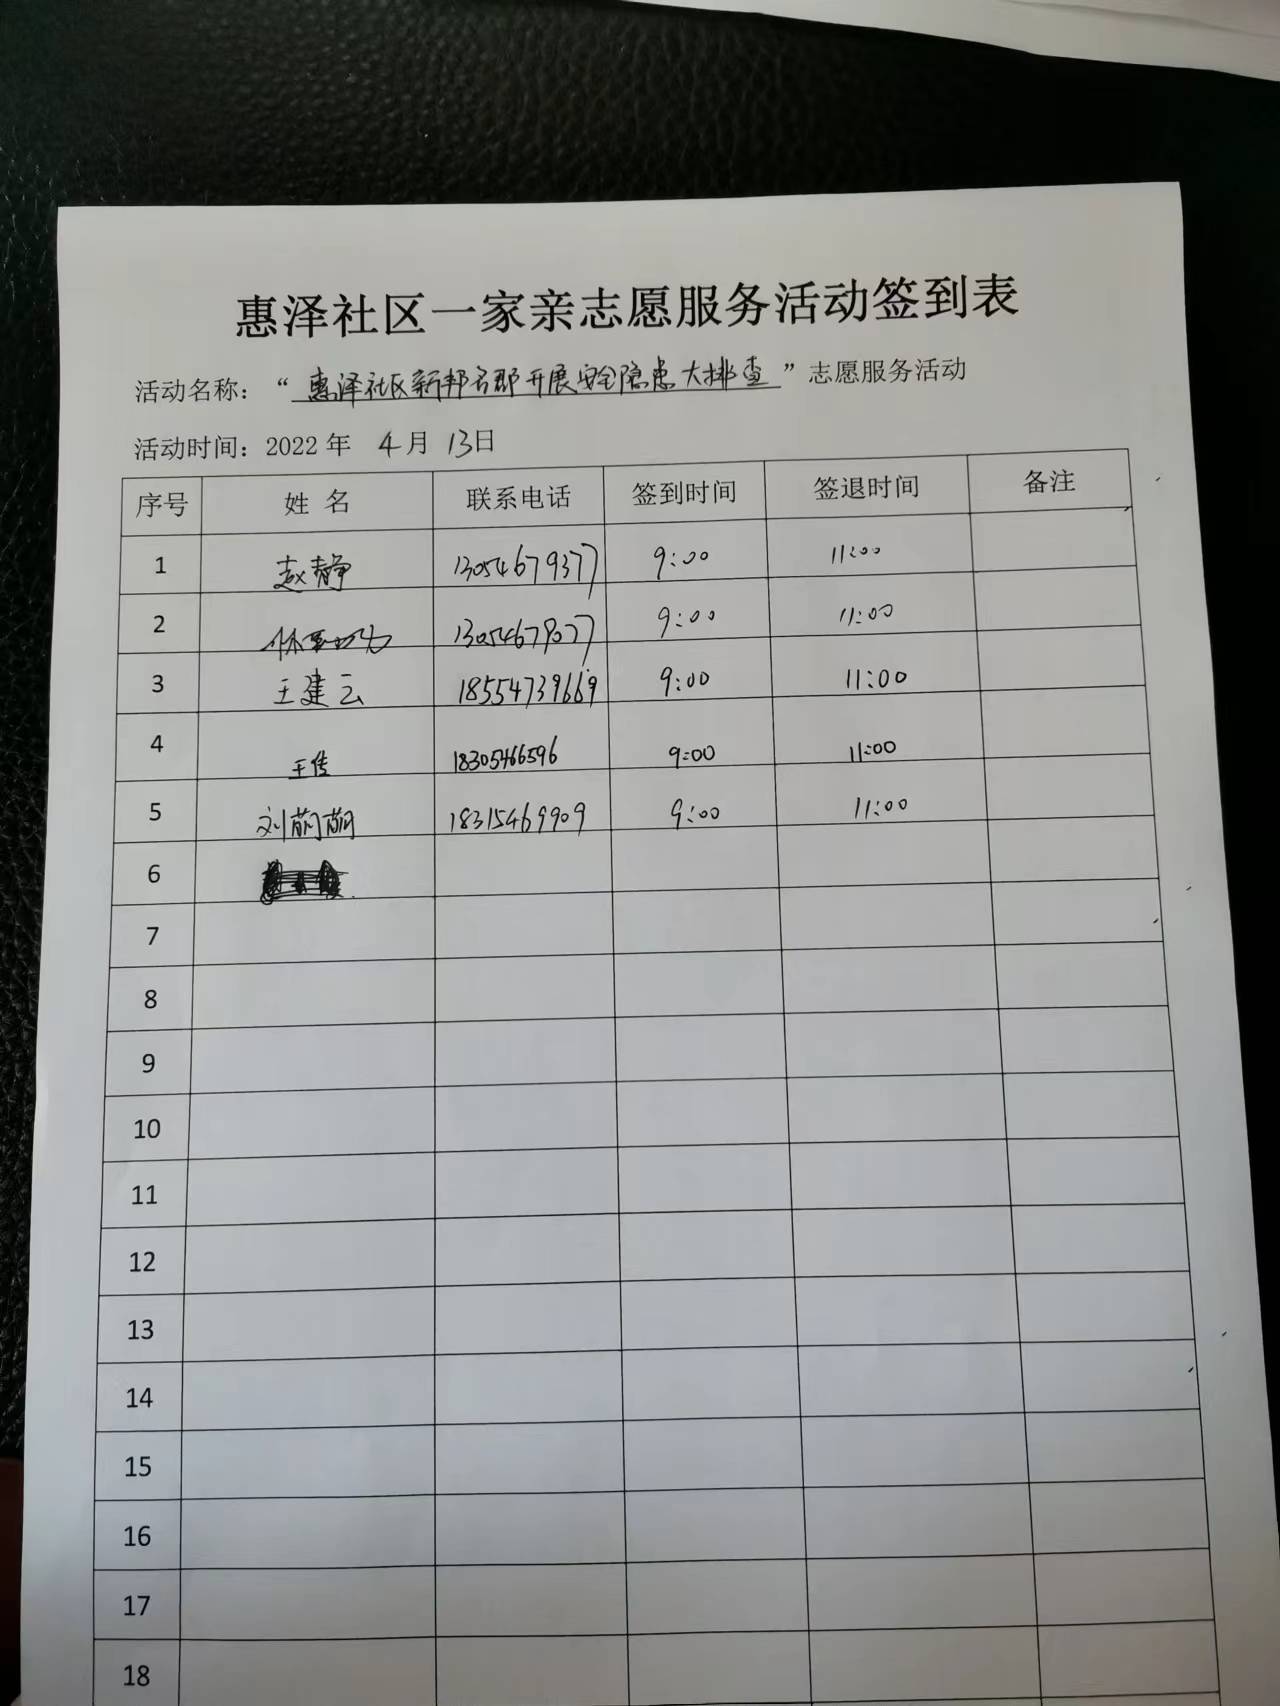 惠泽社区一家亲志愿服务活动签到表
活动名称：“惠泽社区新邦名郡开展安全隐患大排查”志愿服务活动
活动时间：2022年 4月 13日
序号 姓 名 联系电话 签到时间 签退时间 备注
1 赵静 13054679377 9:00 11:00
2 13054679077 9:00 11:00
3 王建云 18554739669 9:00 11:00
4 王传 18305466596 9:00 11:00
5 刘萌萌 18315469909 9:00 11:00
6
7
8
9
10
11
12
13
14
15
16
17
18